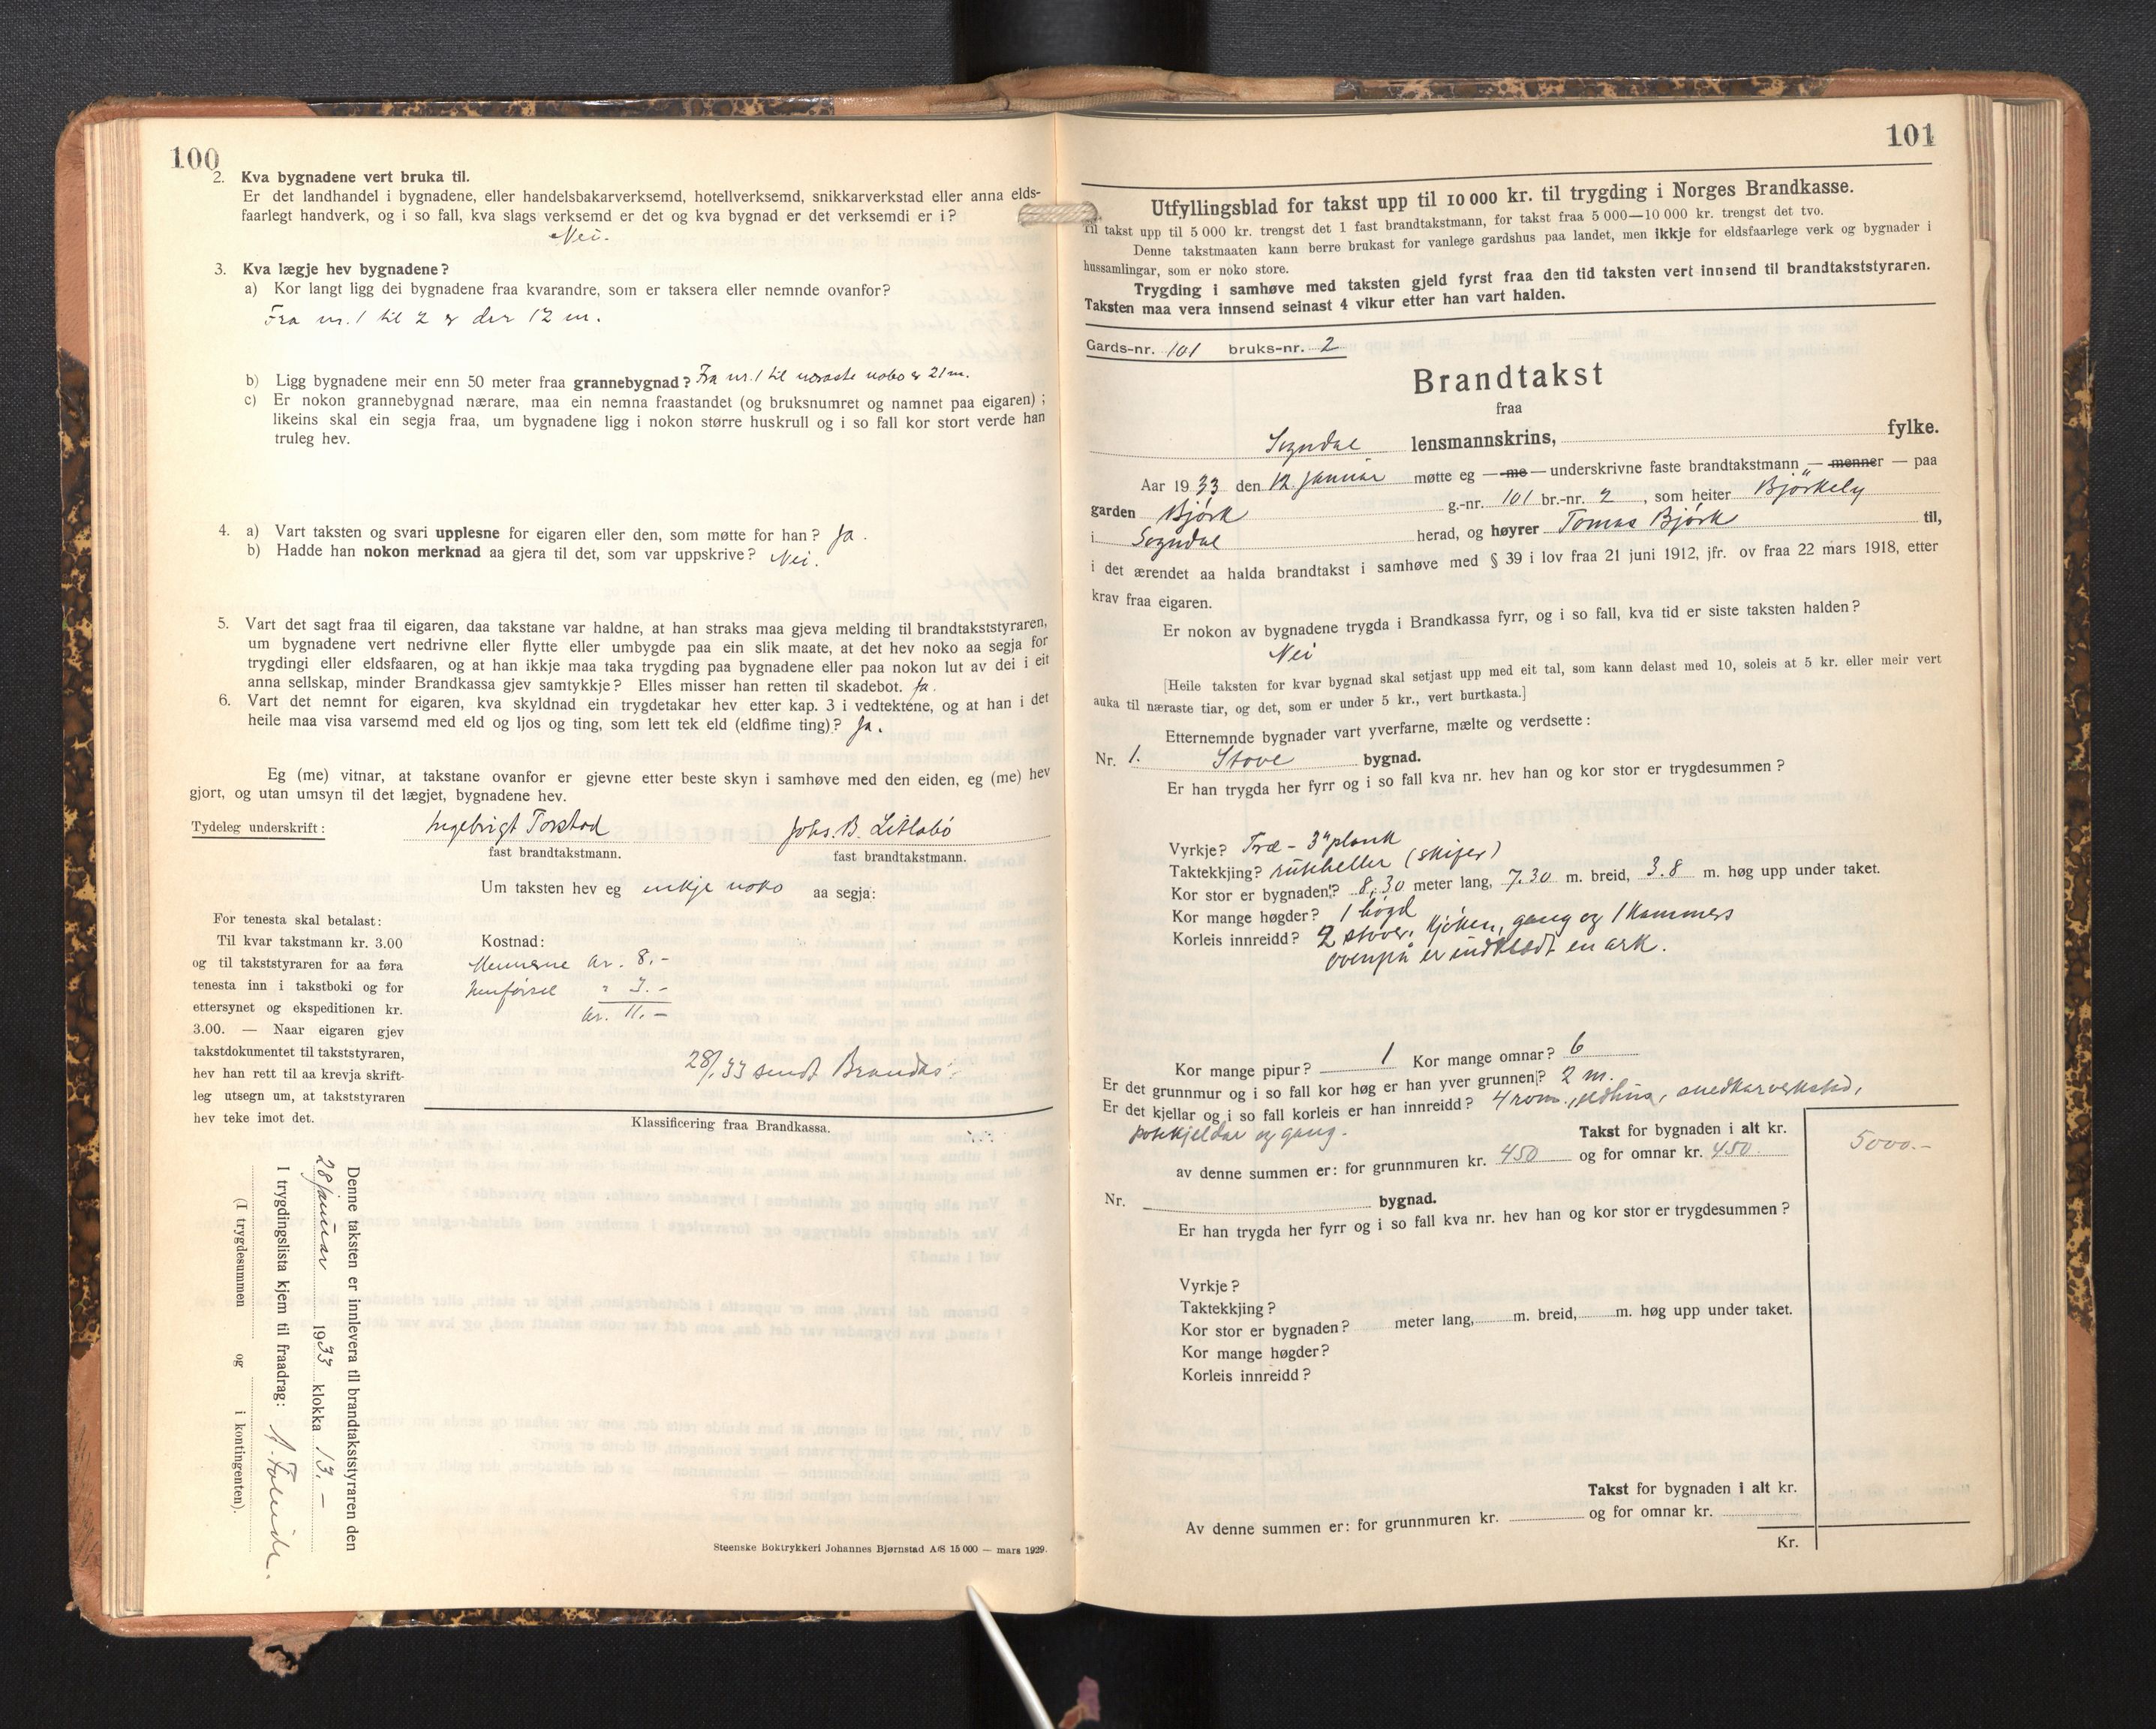 100
2. Kva bygnadene vert bruka til.
Er det landhandel i bygnadene, eller handelsbakarverksemd, hotellverksemd, snikkarverkstad eller anna elds-
faarlegt handverk, og i so fall, kva slags verksemd er det og kva bygnad er det verksemdi er i?
Nei.
3. Kva lægje hev bygnadene?
a) Kor langt ligg dei bygnadene fraa kvarandre, som er taksera eller nemnde ovanfor?
Fra nr. 1 til 2 er der 12 m.
b) Ligg bygnadene meir enn 50 meter fraa grannebygnad? Fra nr. 1 til næraste nabo er 21 m.
c) Er nokon grannebygnad nærare, maa ein nemna fraastandet (og bruksnumret og namnet paa eigaren);
likeins skal ein segja fraa, um bygnadene ligg i nokon større huskrull og i so fall kor stort verde han
truleg hev.
4. a) Vart taksten og svari upplesne for eigaren eller den, som møtte for han? Ja.
b) Hadde han nokon merknad aa gjera til det, som var uppskrive? Nei.
5. Vart det sagt fraa til eigaren, daa takstane var haldne, at han straks maa gjeva melding til brandtakststyraren,
um bygnadene vert nedrivne eller flytte eller umbygde paa ein slik maate, at det hev noko aa segja for
trygdingi eller eldsfaaren, og at han ikkje maa taka trygding paa bygnadene eller paa nokon lut av dei i eit
anna sellskap, minder Brandkassa gjev samtykkje? Elles misser han retten til skadebot. Ja.
6. Vart det nemnt for eigaren, kva skyldnad ein trygdetakar hev etter kap. 3 i vedtektene, og at han i det
heile maa visa varsemd med eld og ljos og ting, som lett tek eld (eldfime ting)? Ja.
Eg (me) vitnar, at takstane ovanfor er gjevne etter beste skyn i samhøve med den eiden, eg (me) hev
gjort, og utan umsyn til det lægjet, bygnadene hev.
Tydeleg underskrift: Ingebrigt Torstad Johs. B. Litlabø
fast brandtakstmann. fast brandtakstmann.
Um taksten hev eg inkje noko aa segja:
For tenesta skal betalast:
Til kvar takstmann kr. 3.00
og til takststyraren for aa føra
tenesta inn i takstboki og for
ettersynet og ekspeditionen kr.
3.00. — Naar eigaren gjev
takstdokumentet til takststyraren,
hev han rett til aa krevja skrift-
leg utsegn um, at takststyraren
hev teke imot det.
Kostnad:
Mennene kr. 8.-
Innførsel " 3.-
kr. 11.-
28/1 33 sendt Brandks.
Klassificering fraa Brandkassa.
Denne taksten er innlevera til brandtakststyraren den
28 januar 1933 klokka 13.-
I trygdingslista kjem til fraadrag:
(I trygdesummen og i kontingenten).
Steenske Boktrykkeri Johannes Bjørnstad A/S 15 000 — mars 1929.
101
Utfyllingsblad for takst upp til 10 000 kr. til trygding i Norges Brandkasse.
Til takst upp til 5 000 kr. trengst det 1 fast brandtakstmann, for takst fraa 5 000—10 000 kr. trengst det tvo.
Denne takstmaaten kann berre brukast for vanlege gardshus paa landet, men ikkje for eldsfaarlege verk og bygnader i
hussamlingar, som er noko store.
Trygding i samhøve med taksten gjeld fyrst fraa den tid taksten vert innsend til brandtakststyraren.
Taksten maa vera innsend seinast 4 vikur etter han vart halden.
Gards-nr. 101 bruks-nr. 2
Brandtakst
fraa
Sogndal lensmannskrins, fylke.
Aar 1933 den 12 januar møtte eg — me — underskrivne faste brandtakstmann — menner — paa
garden Bjørk g.-nr. 101 br.-nr. 2, som heiter Bjørkely
i Sogndal herad, og høyrer Tomas Bjørk til,
i det ærendet aa halda brandtakst i samhøve med § 39 i lov fraa 21 juni 1912, jfr. ov fraa 22 mars 1918, etter
krav fraa eigaren.
Er nokon av bygnadene trygda i Brandkassa fyrr, og i so fall, kva tid er siste taksten halden?
Nei
[Heile taksten for kvar bygnad skal setjast upp med eit tal, som kann delast med 10, soleis at 5 kr. eller meir vert
auka til næraste tiar, og det, som er under 5 kr., vert burtkasta.]
Etternemnde bygnader vart yverfarne, mælte og verdsette:
Nr. 1. Stove bygnad.
Er han trygda her fyrr og i so fall kva nr. hev han og kor stor er trygdesummen?
Vyrkje? Træ - 3" plank
Taktekkjing? rutheller (skifer)
Kor stor er bygnaden? 8,30 meter lang, 7.30 m. breid, 3.8 m. høg upp under taket.
Kor mange høgder? 1 høgd
Korleis innreidd? 2 stover, kjøken, gang og 1 kammers
ovenpå er indklædt en ark.
Kor mange pipur? 1 Kor mange omnar? 6
Er det grunnmur og i so fall kor høg er han yver grunnen? 2 m.
Er det kjellar og i so fall korleis er han innreidd? 4 rom, vedhus, snedkarverkstad,
potetkjeldar og gang.
Takst for bygnaden i alt kr. 5000.-
av denne summen er: for grunnmuren kr. 450 og for omnar kr. 450.
Nr. bygnad.
Er han trygda her fyrr og i so fall kva nr. hev han og kor stor er trygdesummen?
Vyrkje?
Taktekkjing?
Kor stor er bygnaden? meter lang, m. breid, m. høg upp under taket.
Kor mange høgder?
Korleis innreidd?
Takst for bygnaden i alt kr.
Av denne summen er: for grunnmuren kr. og for omnar kr.
Kr.